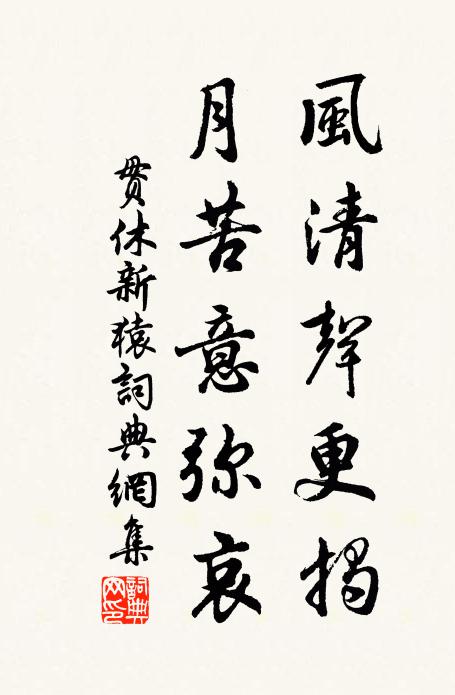 風清聲更揭
月苦意弥哀
貫休新猿詞典網集
詞典网印